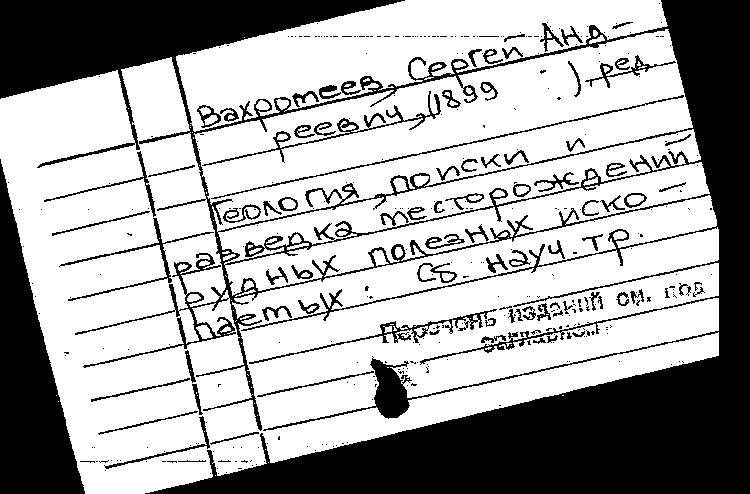 Вахромеев, Сергей Анд-
реевич, (1899 ), ред.
Геология, поиски и
разведка месторождений
рудных полезных иско-
паемых: Сб. науч. тр.
Перечень изданий см. под
заглавием